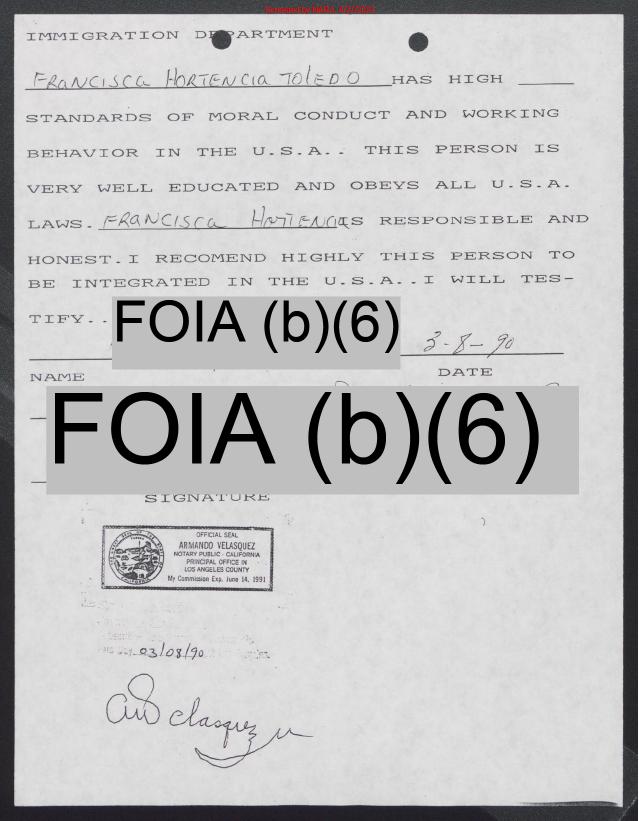 Screened by NARA, 8/21/2023
IMMIGRATION DEPARTMENT
FRANCISCA HORTENCIA TOLEDO HAS HIGH
STANDARDS OF MORAL CONDUCT AND WORKING
BEHAVIOR IN THE U.S.A.. THIS PERSON IS
VERY WELL EDUCATED AND OBEYS ALL U.S.A.
LAWS. FRANCISCA IS RESPONSIBLE AND
HONEST.I RECOMEND HIGHLY THIS PERSON TO
BE INTEGRATED IN THE U.S.A..I WILL TES-
TIFY..
FOIA (b)(6)
3-8-90
NAME DATE
FOIA (b)(6)
SIGNATURE
OFFICIAL SEAL
ARMANDO VELASQUEZ
NOTARY PUBLIC - CALIFORNIA
PRINCIPAL OFFICE IN
LOS ANGELES COUNTY
My Commission Exp. June 14, 1991
03/08/90